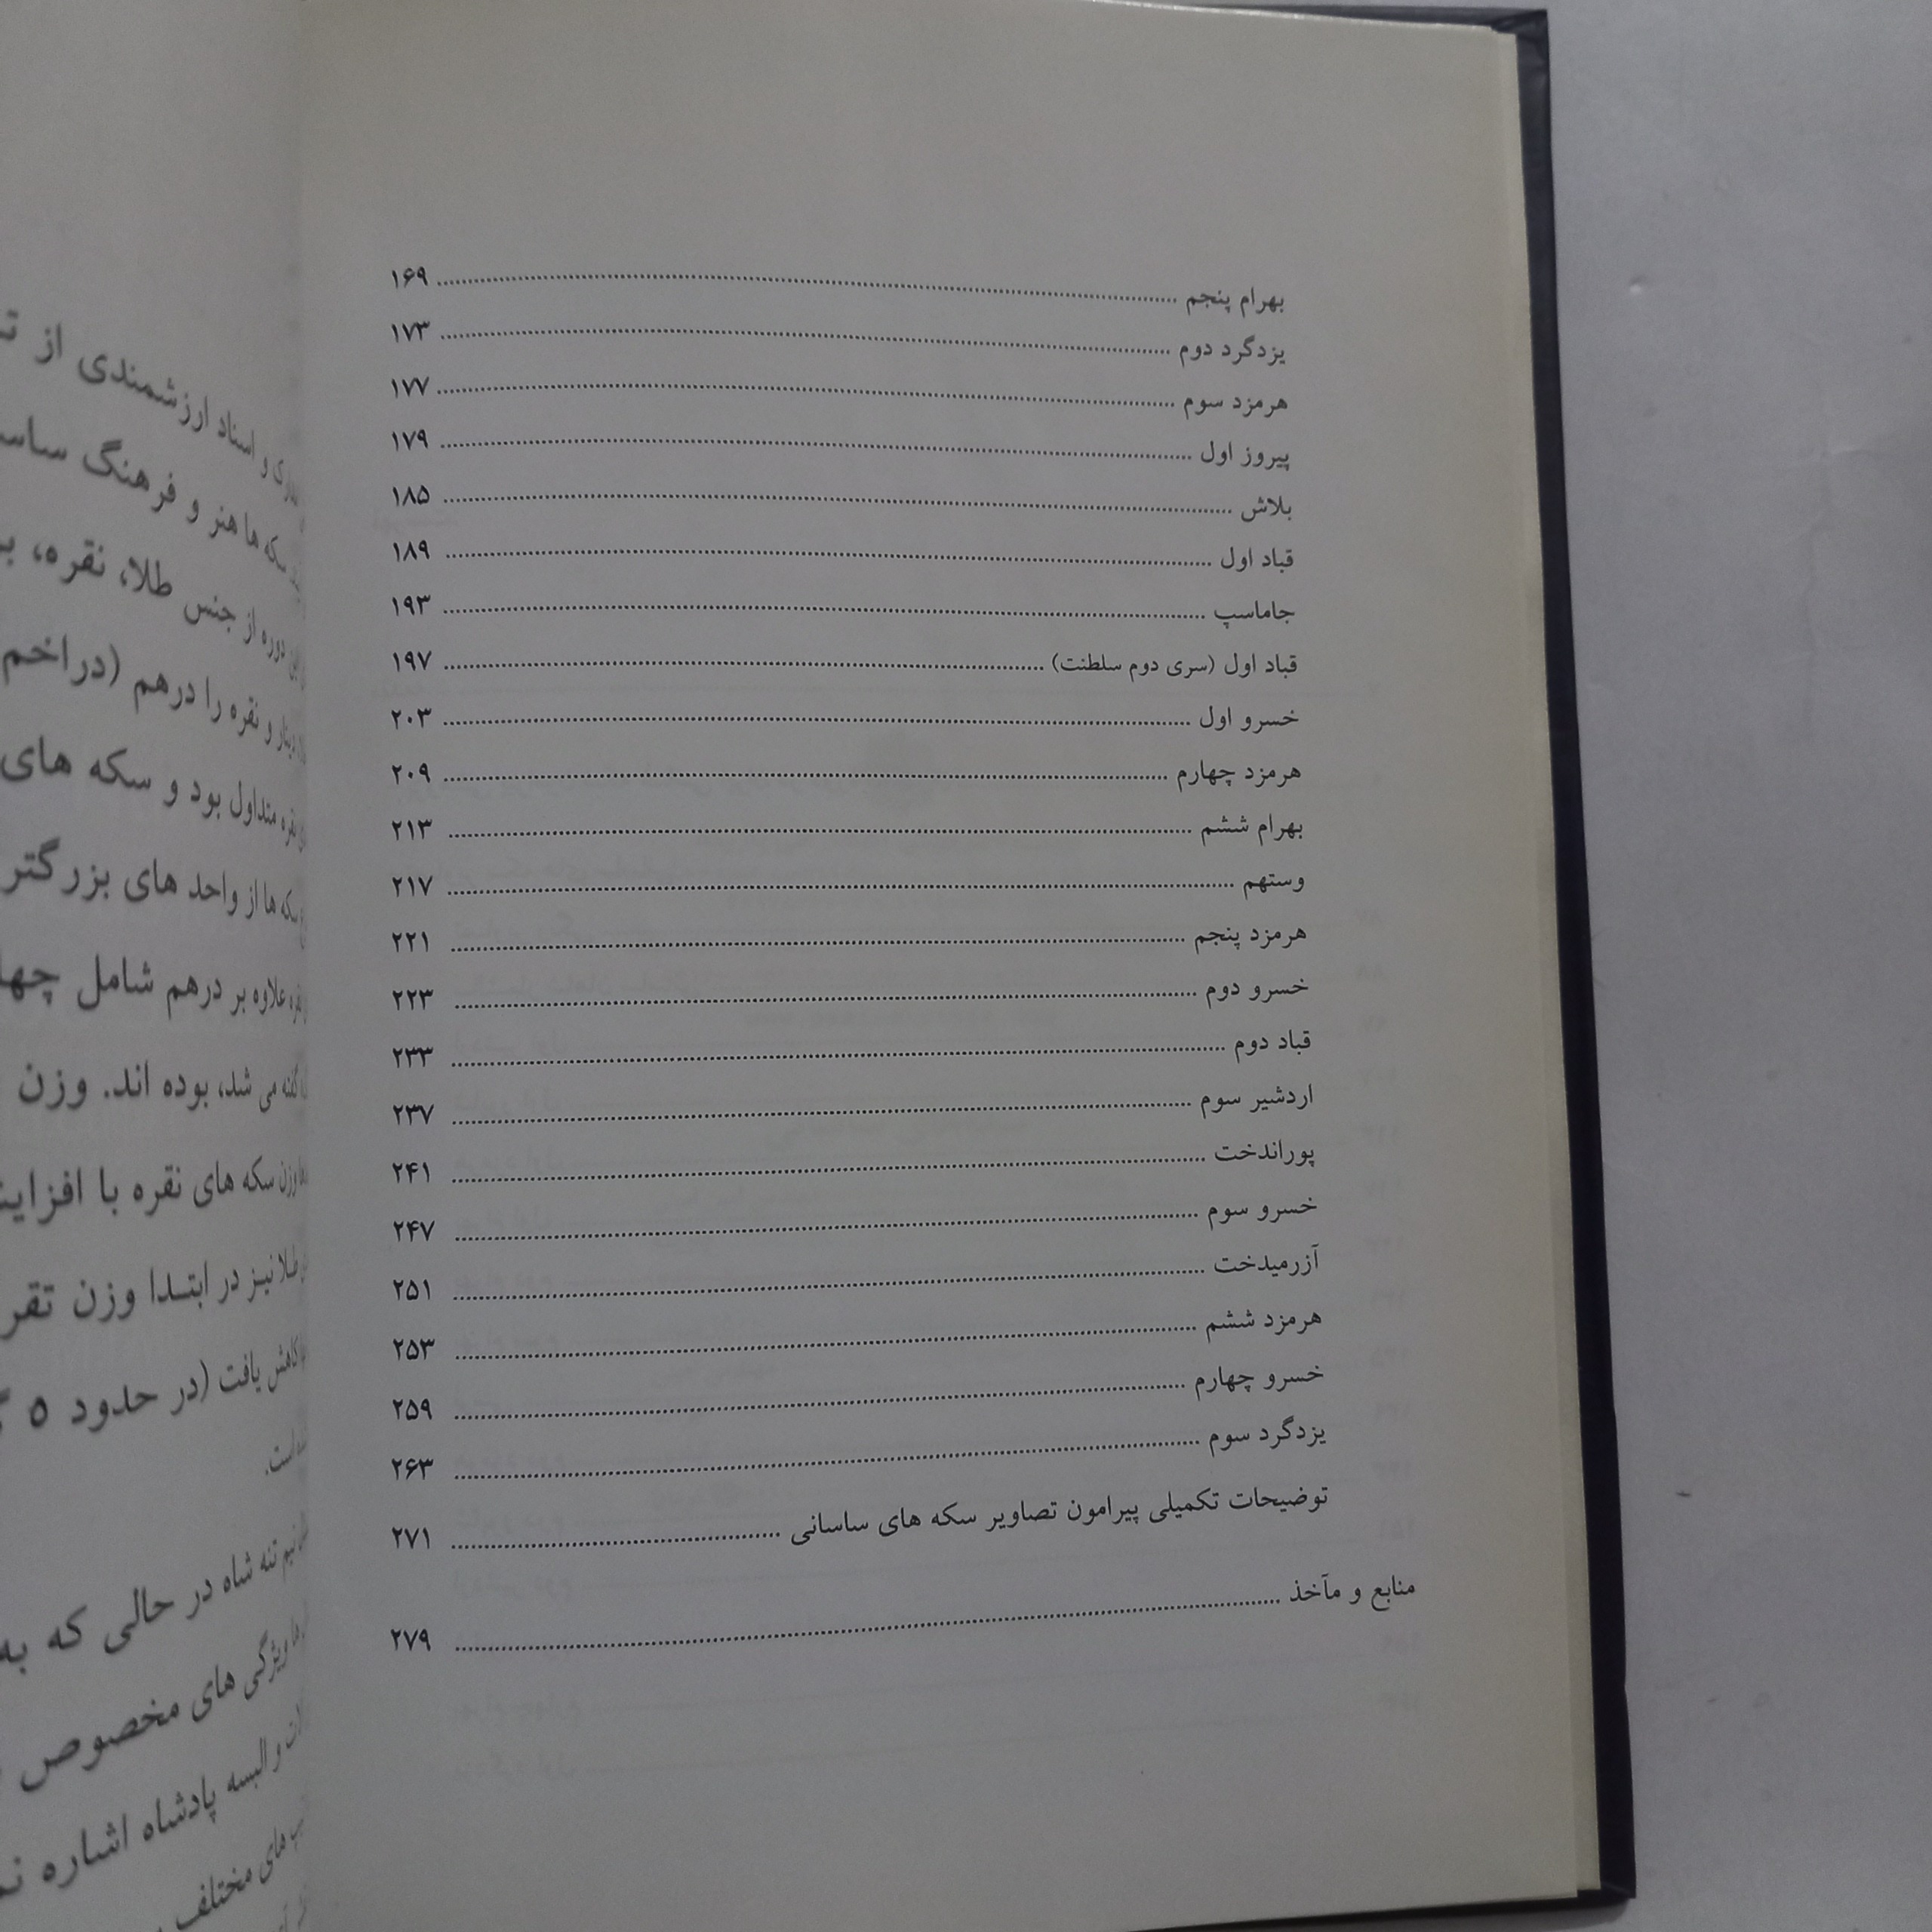 بهرام پنجم ........ ۱۶۹
یزدگرد دوم ........ ۱۷۳
هرمزد سوم ........ ۱۷۷
پیروز اول ........ ۱۷۹
بلاش ........ ۱۸۵
قباد اول ........ ۱۸۹
جاماسپ ........ ۱۹۳
قباد اول (سری دوم سلطنت) ........ ۱۹۷
خسرو اول ........ ۲۰۳
هرمزد چهارم ........ ۲۰۹
بهرام ششم ........ ۲۱۳
وستهم ........ ۲۱۷
هرمزد پنجم ........ ۲۲۱
خسرو دوم ........ ۲۲۳
قباد دوم ........ ۲۳۳
اردشیر سوم ........ ۲۳۷
پوراندخت ........ ۲۴۱
خسرو سوم ........ ۲۴۷
آزرمیدخت ........ ۲۵۱
هرمزد ششم ........ ۲۵۳
خسرو چهارم ........ ۲۵۹
یزدگرد سوم ........ ۲۶۳
توضیحات تکمیلی پیرامون تصاویر سکه های ساسانی ........ ۲۷۱
منابع و مآخذ ........ ۲۷۹
و اسناد ارزشمندی از
سکه ها هنر و فرهنگ
دوره از جنس طلا، نقره،
دینار و نقره را درهم (دراخم
نقره متداول بود و سکه های
سکه ها از واحد های بزرگتر
علاوه بر درهم شامل
گفته می شد، بوده اند. وزن
وزن سکه های نقره با
طلا نیز در ابتدا وزن
کاهش یافت (در حدود ۵
است.
نیم تنه شاه در حالی که به
ویژگی های مخصوص
و البسه پادشاه اشاره
های مختلف